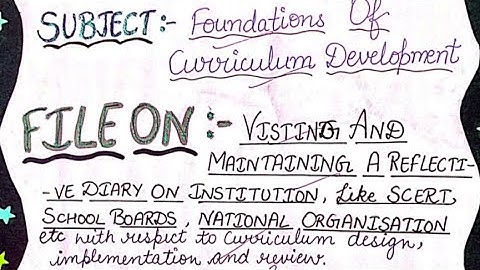 SUBJECT:- Foundations Of
Curriculum Development
FILE ON:- VISTING AND
MAINTAINING A REFLECTI-
-VE DIARY ON INSTITUTION, Like SCERT,
SCHOOL BOARDS, NATIONAL ORGANISATION
etc with respect to Curriculum design,
implementation and review.